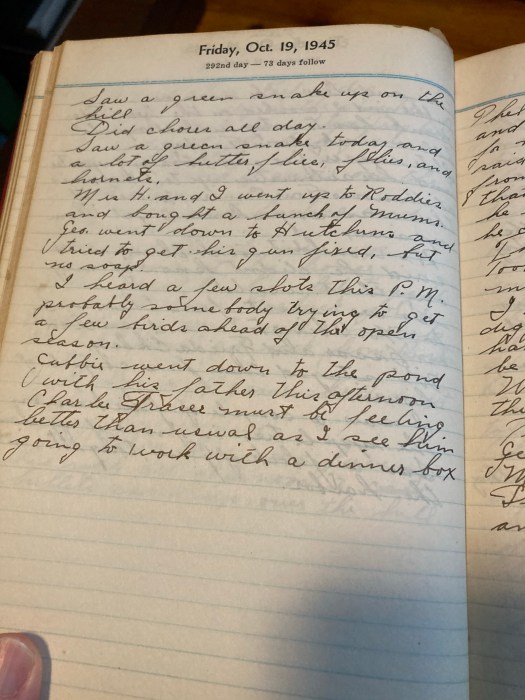 Friday, Oct. 19, 1945
292nd day — 73 days follow
Saw a green snake up on the
hill
Did chores all day.
Saw a green snake today and
a lot of butterflies, flies, and
hornets.
Mrs H. and I went up to Roddies
and bought a bunch of mums.
Geo. went down to Hutchins and
tried to get his gun fixed, but
no soap.
I heard a few shots this P.M.
probably somebody trying to get
a few birds ahead of the open
season.
Cubbie went down to the pond
with his father this afternoon
Charlie Fraser must be feeling
better than usual as I see him
going to work with a dinner box
and
said
from
than
he
he
I
dig
ha
be
the
Ge
an